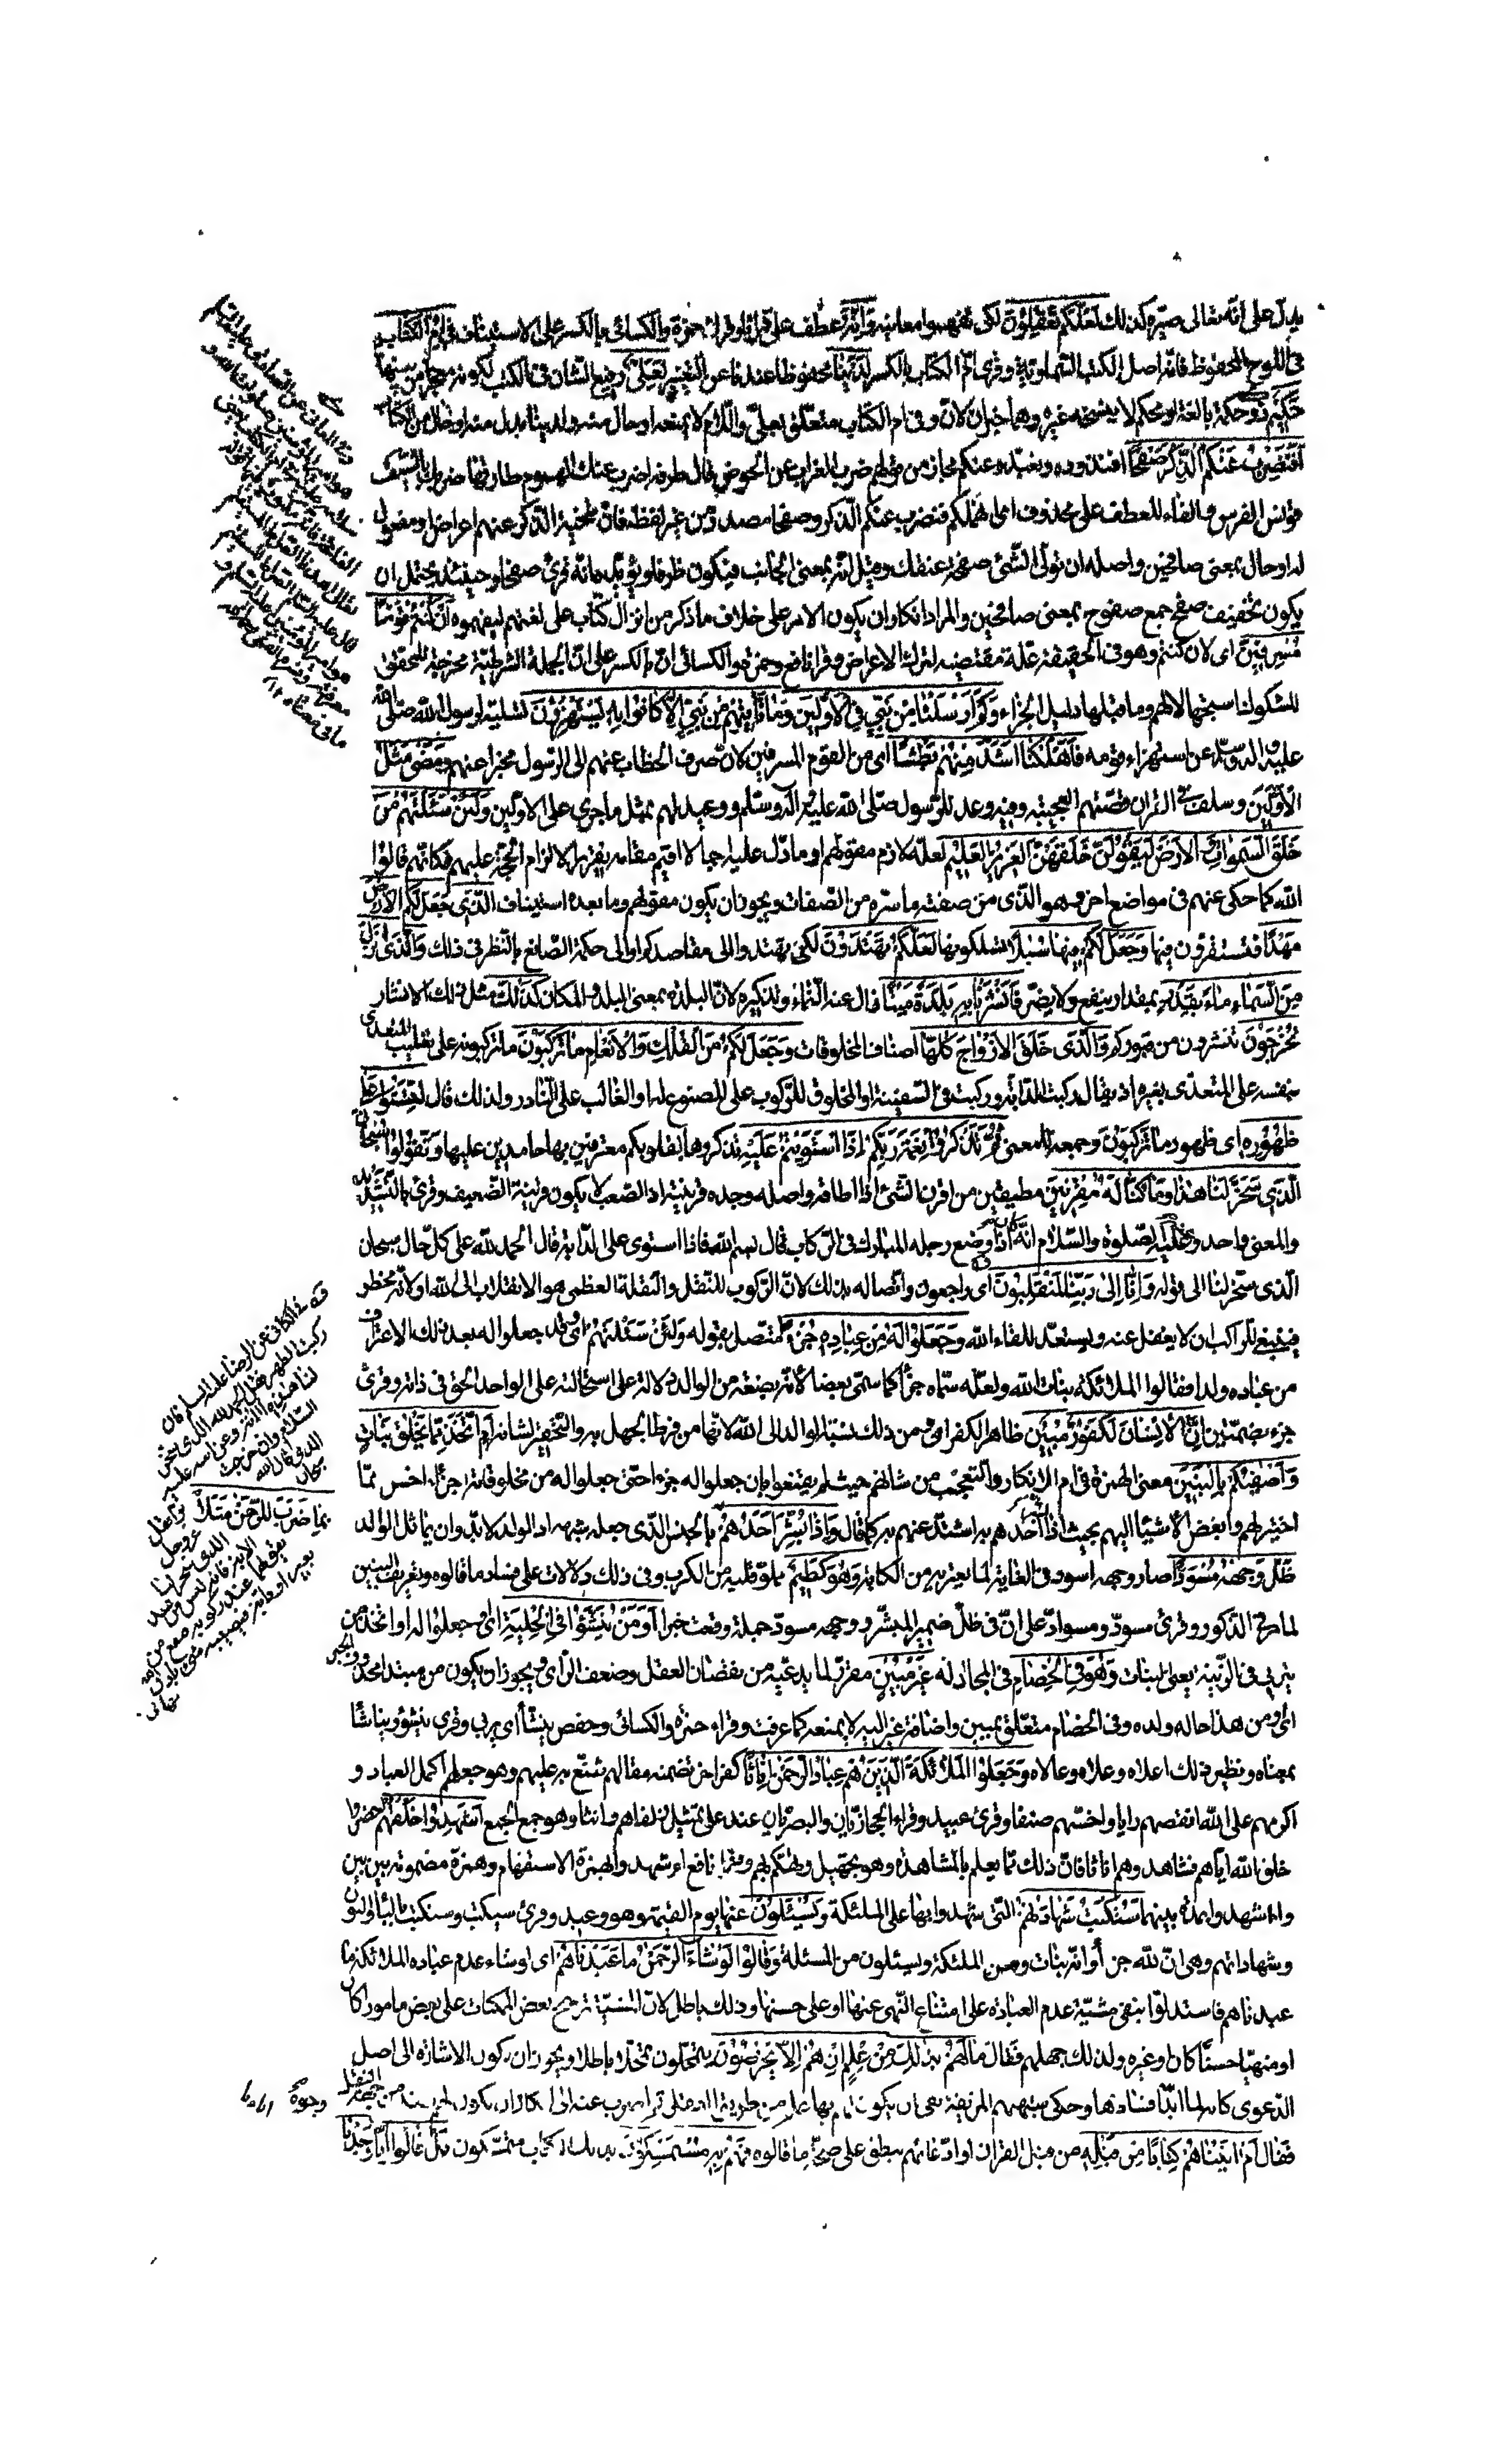 يدل على انه تعالى صيره كذلك لعلكم تعقلون لكى تفهموا معانيه وانه عطف على انا وقرأ حمزة والكسائى بالكسر على الاستيناف فى ام الكتاب
فى اللوح المحفوظ فانه اصل الكتب السماوية وقرئ ام الكتاب بالكسر لدينا محفوظا عندنا عن التغيير لعلى رفيع الشان فى الكتب لكونه معجزا من بينها
حكيم ذو حكمة بالغة او محكم لا ينسخه غيره وهما خبران لان وفى ام الكتاب متعلق بعلى واللام لا يمنعه او حال منه ولدينا بدل منه او حال من الكتاب
افنضرب عنكم الذكر صفحا افنذوده ونبعده عنكم مجاز من قولهم ضرب الغرائب عن الحوض قال طرفة اضرب عنك الهموم طارقها ضربك بالسيف
قونس الفرس والفاء للعطف على محذوف اى انهملكم فنضرب عنكم الذكر وصفحا مصدر من غير لفظه فان تنحية الذكر عنهم اعراض او مفعول
له او حال بمعنى صافحين واصله ان تولى الشئ صفحة عنقك وقيل انه بمعنى الجانب فيكون ظرفا ويؤيده انه قرئ صفحا وحينئذ يحتمل ان
يكون تخفيف صفح جمع صفوح بمعنى صافحين والمراد انكار ان يكون الامر على خلاف ما ذكر من انزال كتاب على لغتهم ليفهموه ان كنتم قوما
مسرفين اى لان كنتم وهو فى الحقيقة علة مقتضية لترك الاعراض وقرأ نافع وحمزة والكسائى ان بالكسر على ان الجملة الشرطية مخرجة للمحقق
المشكوك استجهالا لهم وما قبلها دليل الجزاء وكم ارسلنا من نبى فى الاولين وما يأتيهم من نبى الا كانوا به يستهزؤن تسلية لرسول الله صلى الله
عليه واله وسلم عن استهزاء قومه فاهلكنا اشد منهم بطشا اى من القوم المسرفين لانه صرف الخطاب عنهم الى الرسول مخبرا عنهم ومضى مثل
الاولين وسلف فى القران قصتهم العجيبة وفيه وعد للرسول صلى الله عليه واله وسلم ووعيد لهم بمثل ما جرى على الاولين ولئن سئلتهم من
خلق السموات والارض ليقولن خلقهن العزيز العليم لعله لازم مقولهم او ما دل عليه اجمالا اقيم مقامه تقريرا لالزام الحجة عليهم فكانهم قالوا
الله كما حكى عنهم فى مواضع اخر وهو الذى من صفته ما سرد من الصفات ويجوز ان يكون مقولهم وما بعده استيناف الذى جعل لكم الارض
مهدا فتستقرون فيها وجعل لكم فيها سبلا تسلكونها لعلكم تهتدون لكى تهتدوا الى مقاصدكم او الى حكمة الصانع بالنظر فى ذلك والذى نزل
من السماء ماء بقدر بمقدار ينفع ولا يضر فانشرنا به بلدة ميتا زال عنه النماء وتذكيره لان البلدة بمعنى البلد والمكان كذلك مثل ذلك الانشار
تخرجون تنشرون من قبوركم والذى خلق الازواج كلها اصناف المخلوقات وجعل لكم من الفلك والانعام ما تركبون ما تركبونه على تغليب المتعدى
بنفسه على المتعدى بغيره اذ يقال ركبت الدابة وركبت فى السفينة او المخلوق للركوب على المصنوع له او الغالب على النادر ولذلك قال لتستووا على
ظهوره اى ظهور ما تركبون وجمعه للمعنى ثم تذكروا نعمة ربكم اذا استويتم عليه تذكروها بقلوبكم معترفين بها حامدين عليها وتقولوا سبحان
الذى سخر لنا هذا وما كنا له مقرنين مطيقين من اقرن الشئ اذا اطاقه واصله وجده قرينته اذ الصعب لا يكون قرينة الضعيف وقرئ بالتشديد
والمعنى واحد وعنه عليه الصلوة والسلام انه كان اذا وضع رجله المبارك فى الركاب قال بسم الله فاذا استوى على الدابة قال الحمد لله على كل حال سبحان
الذى سخر لنا الى قوله وانا الى ربنا لمنقلبون اى راجعون واتصاله بذلك لان الركوب للتنقل والنقلة العظمى هو الانقلاب الى الله او لانه مخطر
فينبغى للراكب ان لا يغفل عنه ويستعد للقاء الله وجعلوا له من عباده جزء متصل بقوله ولئن سئلتهم اى وقد جعلوا له بعد ذلك الاعتراف
من عباده ولدا فقالوا الملائكة بنات الله ولعله سماه جزأ كما سمى بعضا لانه بضعة من الوالد دلالة على استحالته على الواحد الحق فى ذاته وقرئ
جزء بضمتين ان الانسان لكفور مبين ظاهر الكفران ومن ذلك نسبة الولد الى الله لانها من فرط الجهل به والتحقير لشانه ام اتخذ مما يخلق بنات
واصفيكم بالبنين معنى الهمزة فى ام الانكار والتعجب من شانهم حيث لم يقنعوا بان جعلوا له جزء حتى جعلوا له من مخلوقاته اجزاء اخس مما
اختير لهم وابغض الاشياء اليهم بحيث اذا بشر احدهم به اشتد غمهم به كما قال واذا بشر احدهم بالجنس الذى جعله شبهه اذ الولد لا بد وان يماثل الوالد
ظل وجهه مسودا صار وجهه اسود فى الغاية لما يعتريه من الكابة وهو كظيم مملو قلبه من الكرب وفى ذلك دلالات على فساد ما قالوه وتعريف البنين
لما مر فى الذكور وقرئ مسود ومسواد على ان فى ظل ضمير المبشر ووجهه مسود جملة وقعت خبرا أومن ينشؤا فى الحلية اى وجعلوا له او اتخذ من
يتربى فى الزينة يعنى البنات وهو فى الخصام فى المجادلة غير مبين مقرر لما يدعيه من نقصان العقل وضعف الراى ويجوز ان يكون من مبتدأ محذوف الخبر
اى اومن هذا حاله ولده وفى الخصام متعلق بمبين واضافة غير اليه لا يمنعه كما عرفت وقرأ حمزة والكسائى وحفص ينشأ اى يربى وقرئ ينشؤ ويناشأ
بمعناه ونظير ذلك اعلاه وعلاه وعالاه وجعلوا الملائكة الذين هم عباد الرحمن اناثا كفر اخر تضمنه مقالهم شنع به عليهم وهو جعلهم اكمل العباد و
اكرمهم على الله انقصهم رايا واخسهم صنفا وقرئ عبيد وقرأ الحجازيان والبصريان عند على تمثيل زلفاهم وانثا وهو جمع الجمع أشهدوا خلقهم احضروا
خلق الله اياهم فشاهدوهم اناثا فان ذلك مما يعلم بالمشاهدة وهو تجهيل وتهكم بهم وقرأ نافع أءشهدوا بهمزة الاستفهام وهمزة مضمومة بين بين
وءاشهدوا بمدة بينهما ستكتب شهادتهم التى شهدوا بها على الملئكة ويسئلون عنها يوم القيمة وهو وعيد وقرئ سيكتب وسنكتب بالياء والنون
وشهاداتهم وهى ان لله جزأ وانه بنات وهن الملئكة ويسئلون من المسئلة وقالوا لو شاء الرحمن ما عبدناهم اى لو شاء عدم عبادة الملائكة ما
عبدناهم فاستدلوا بنفى مشية عدم العبادة على امتناع النهى عنها او على حسنها وذلك باطل لان المشية ترجح بعض الممكنات على بعض مامورا كان
او منهيا حسنا كان او غيره ولذلك جهلهم فقال ما لهم بذلك من علم ان هم الا يخرصون يتمحلون تمحلا باطلا ويجوز ان يكون الاشارة الى اصل
الدعوى كانه لما ابدا وجوه فسادها وحكى شبههم المزيفة نفى ان يكون لهم بها علم من طريق العقل ثم اضرب عنه الى انكار ان يكون لهم سند من جهة النقل
فقال ام اتيناهم كتابا من قبله من قبل القران او ادعائهم ينطق على صحة ما قالوه فهم به مستمسكون بذلك الكتاب متمسكون بل قالوا انا وجدنا
فى الكافى عن الرضا عليه السلم فان
ركبت الظهر فقل الحمد لله الذى سخر
لنا هذا
بما ضرب للرحمن مثلا